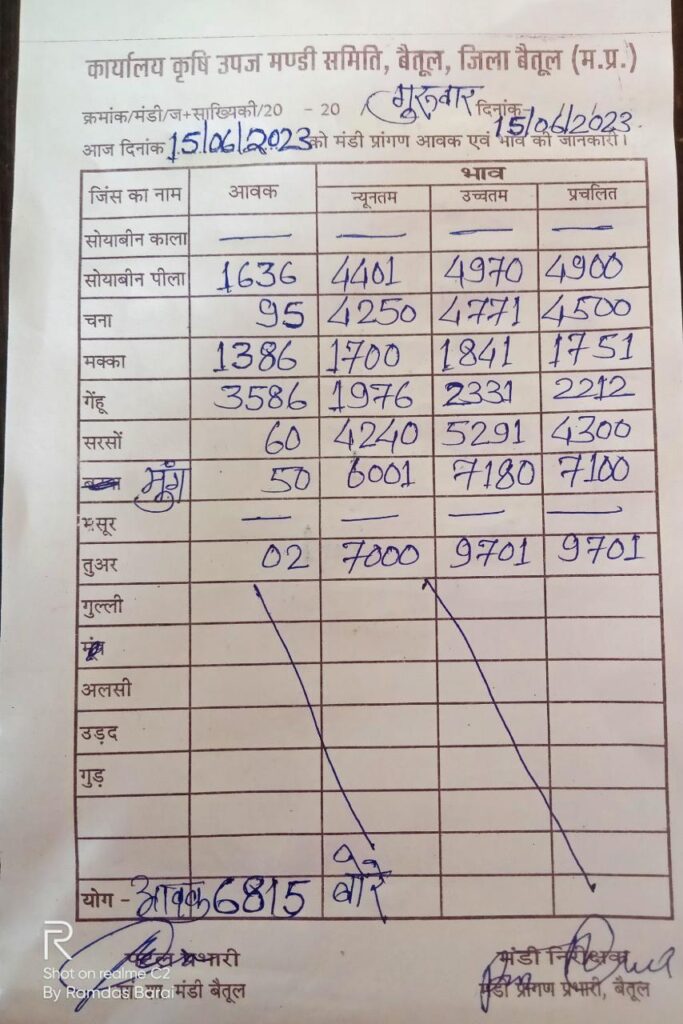 कार्यालय कृषि उपज मण्डी समिति, बैतूल, जिला बैतूल (म.प्र.)
क्रमांक/मंडी/ज+साख्यिकी/20 - 20 गुरूवार दिनांक 15/06/2023
आज दिनांक 15/06/2023 को मंडी प्रांगण आवक एवं भाव की जानकारी।
जिंस का नाम आवक भाव
न्यूनतम उच्चतम प्रचलित
सोयाबीन काला — — — —
सोयाबीन पीला 1636 4401 4970 4900
चना 95 4250 4771 4500
मक्का 1386 1700 1841 1751
गेंहू 3586 1976 2331 2212
सरसों 60 4240 5291 4300
मूंग 50 6001 7180 7100
मसूर — — — —
तुअर 02 7000 9701 9701
गुल्ली
अलसी
उड़द
गुड़
योग - आवक 6815 बोरे
प्रभारी मंडी निरीक्षक
प्रांगण, मंडी बैतूल मंडी प्रांगण प्रभारी, बैतूल
R
Shot on realme C2
By Ramdas Barai